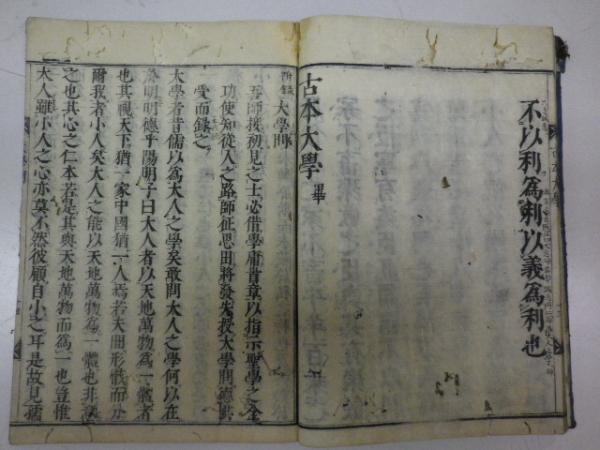 不以利爲利以義爲利也
古本大學畢
附録 大學問
吾師接初見之士必借學庸首章以指示聖學之全
功使知從入之路師征思田將發先授大學問德洪
受而録之
大學者昔儒以爲大人之學矣敢問大人之學何以在
於明明德乎陽明子曰大人者以天地萬物爲一體者
也其視天下猶一家中國猶一人焉若夫間形骸而分
爾我者小人矣大人之能以天地萬物爲一體也非意
之也其心之仁本若是其與天地萬物而爲一也豈惟
大人雖小人之心亦莫不然彼顧自小之耳是故見孺